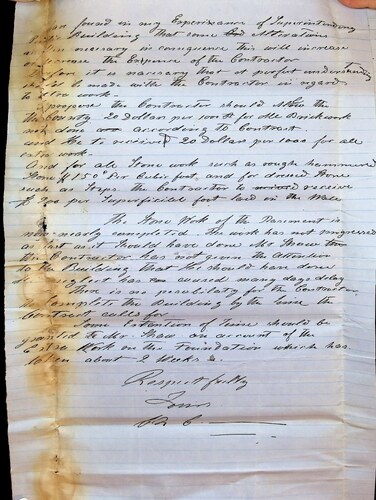 found in my Experience of Superintending
Building that some Alterations
necessary in consequence this will increase
or increase the Expense of the Contractor
it is necessary that a perfect understanding
be made with the Contractor in regard
to Extra work.
I propose the Contractor should allow the
County 20 Dollars per 1000 ft for all Brickwork
not done according to Contract.
and He to receive 20 Dollars per 1000 for all
extra work.
And for all Stone work such as rough hammered
Stone $1.50 Per Cubic foot, and for dressed Stone
such as Steps. the Contractor to receive
per Superficial foot laid in the Wall
The Stone Work of the Basement is
now nearly completed. The work has not progressed
as fast as it should have done Mr
the Contractor has not given the Attention
to the Building that He should have done
neglect has caused many days delay
There is no possibility for the Contractor
to Complete the Building by the time the
Contract calls for
Some Extention of time should be
granted to Mr. on account of the
Extra Work on the Foundation which has
taken about 2 Weeks
Respectfully
Yours